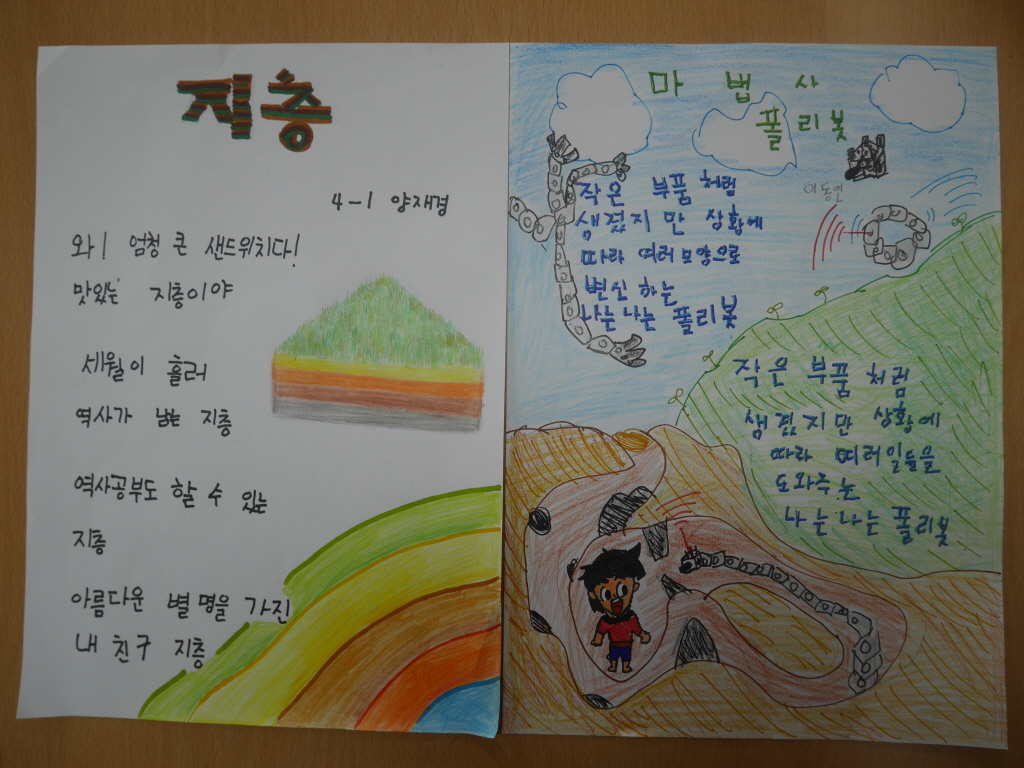 지층
4-1 양재경
와! 엄청 큰 샌드위치다!
맛있는 지층이야
세월이 흘러
역사가 남는 지층
역사공부도 할 수 있는
지층
아름다운 별명을 가진
내 친구 지층
마법사
폴리봇
이동연
작은 부품처럼
생겼지만 상황에
따라 여러모양으로
변신하는
나는나는 폴리봇
작은 부품처럼
생겼지만 상황에
따라 여러일들을
도와주는
나는나는 폴리봇